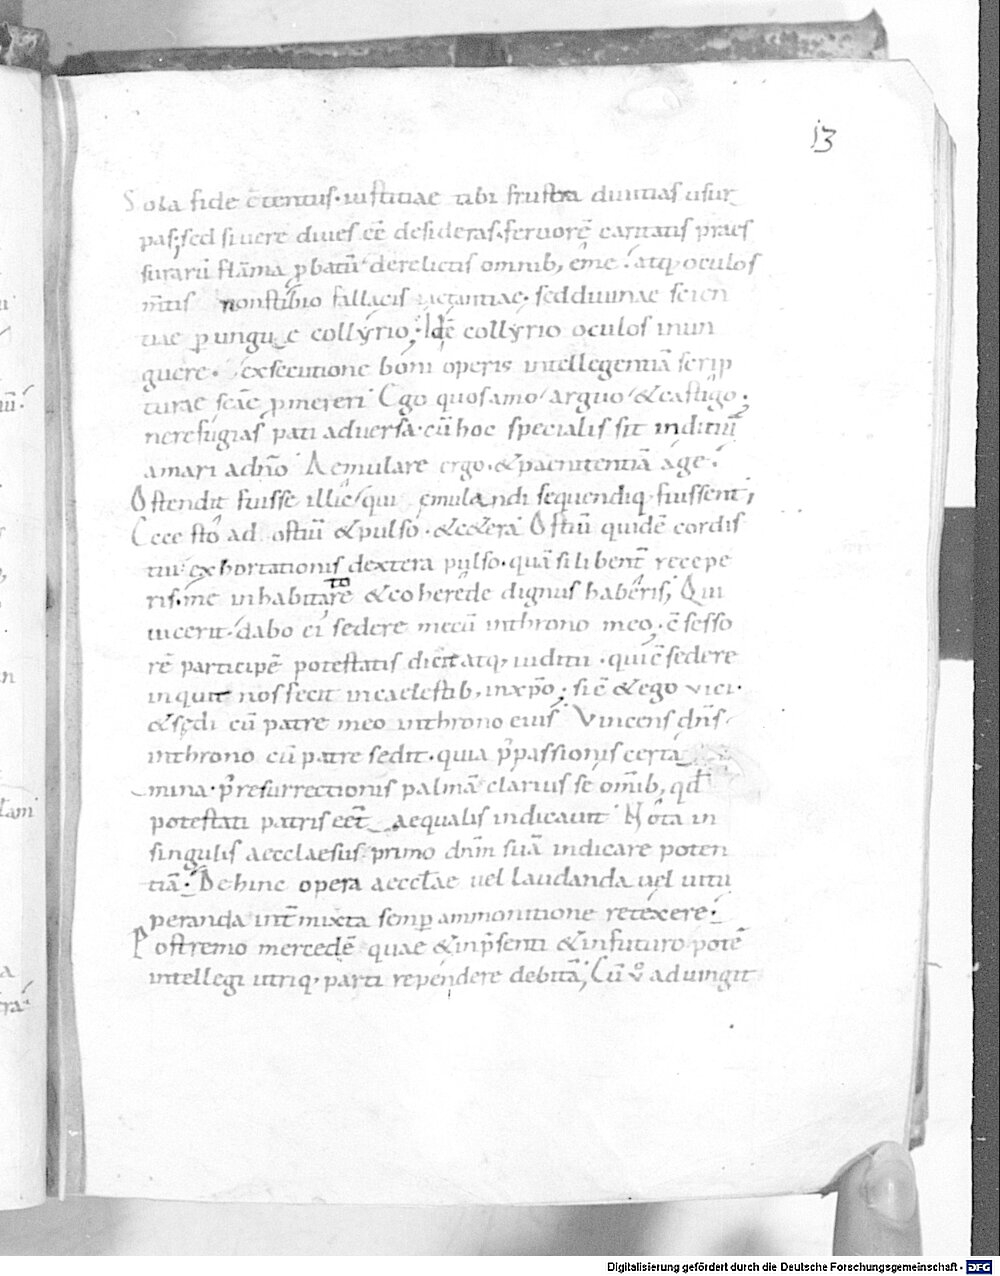 13
Sola fide c̄tentus· iustitiae tibi frustra diuitias usur
pas; sed si uere diues eē desideras· feruorē caritatis praes
surarū flāma ꝓbatū derelictis omnib, eme· atq; oculos
m̄tis non stibio fallacis iactantiae· sed diuinae scien
tiae ꝑunguae collyrio; Idē collyrio oculos inun
guere· exsecutione boni operis intellegentiā scrip
turae scāe ꝓmereri Ego quos amo arguo & castigo·
ne refugias pati aduersa· cū hoc specialis sit inditiū
amari a dn̄o Aemulare ergo· & paenitentiā age·
Ostendit fuisse illic qui emulandi sequendiq; fuissent;
Ecce sto ad ostiū & pulso· & cetera Ostiū quidē cordis
tui exhortationis dextera pulso· quā si libent̄ recepe
ris· me inhabitatore & coherede dignus haberis; Qui
uicerit· dabo ei sedere mecū in throno meo· c̄sesso
rē participē potestatis dicit atq; iuditii· qui c̄sedere
inquit nos fecit in caelestib, in xp̄o; sic & ego vici·
& sedi cū patre meo in throno eius Vincens dn̄s
in throno cū patre sedit· quia p̄ passionis certa
mina· p̄ resurrectionis palmā clarius se omib, qd
potestati patris eēt aequalis indicauit Nota in
singulis aecclaesiis primo dn̄m suā indicare poten
tiā· Dehinc opera aeccłae uel laudanda uel uitu
peranda int̄mixta semp ammonitione retexere·
Postremo mercedē quae & in p̄senti & in futuro potē
intellegi utriq; parti rependere debitā; Cū v° aduingit
Digitalisierung gefördert durch die Deutsche Forschungsgemeinschaft - DFG